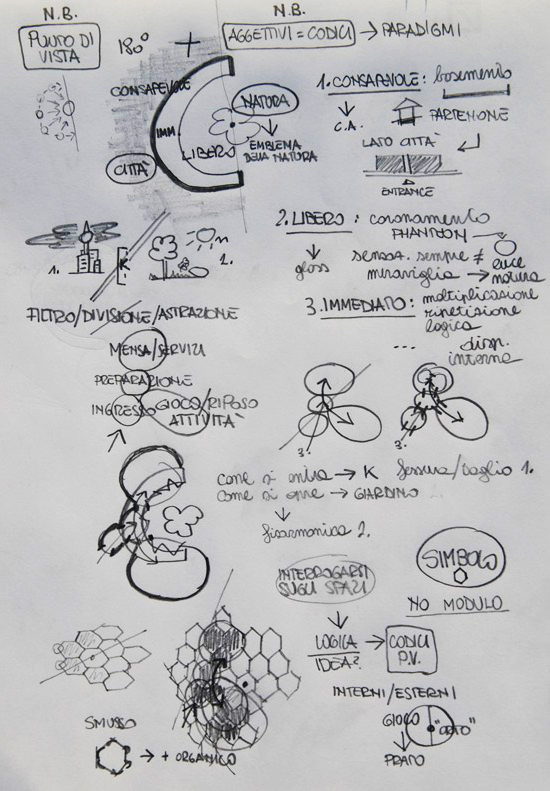 N.B.
PUNTO DI
VISTA
180°
+
N.B.
AGGETTIVI = CODICI → PARADIGMI
CONSAPEVOLE
IMM.
LIBERO
NATURA
EMBLEMA
DELLA NATURA
CITTÀ
1. CONSAPEVOLE: basamento
C.A.
PARTENONE
LATO CITTÀ
ENTRANCE
2. LIBERO: coronamento
PHANTEON
gloss
sensaz. sempre ≠
luce
meraviglia → natura
3. IMMEDIATO: moltiplicazione
ripetizione
logica
... disp.
interne
1.
K
2.
FILTRO/DIVISIONE/ASTRAZIONE
MENSA/SERVIZI
PREPARAZIONE
INGRESSO GIOCO/RIPOSO
ATTIVITÀ
3.
3.
come si entra → K fessura/taglio 1.
come si apre → GIARDINO 2.
fisarmonica 2.
INTERROGARSI
SUGLI SPAZI
SIMBOLO
NO MODULO
LOGICA → CODICI
IDEA? P.V.
INTERNI/ESTERNI
GIOCO "ORTO"
PRATO
SMUSSO
→ + ORGANICO